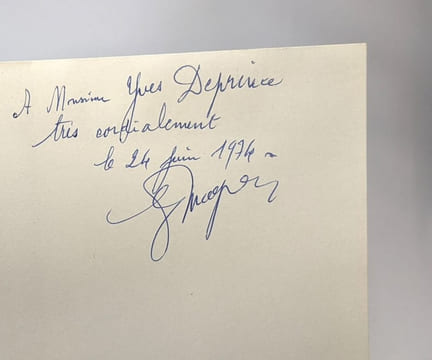 A Monsieur Yves Deprince
très cordialement
le 24 juin 1974